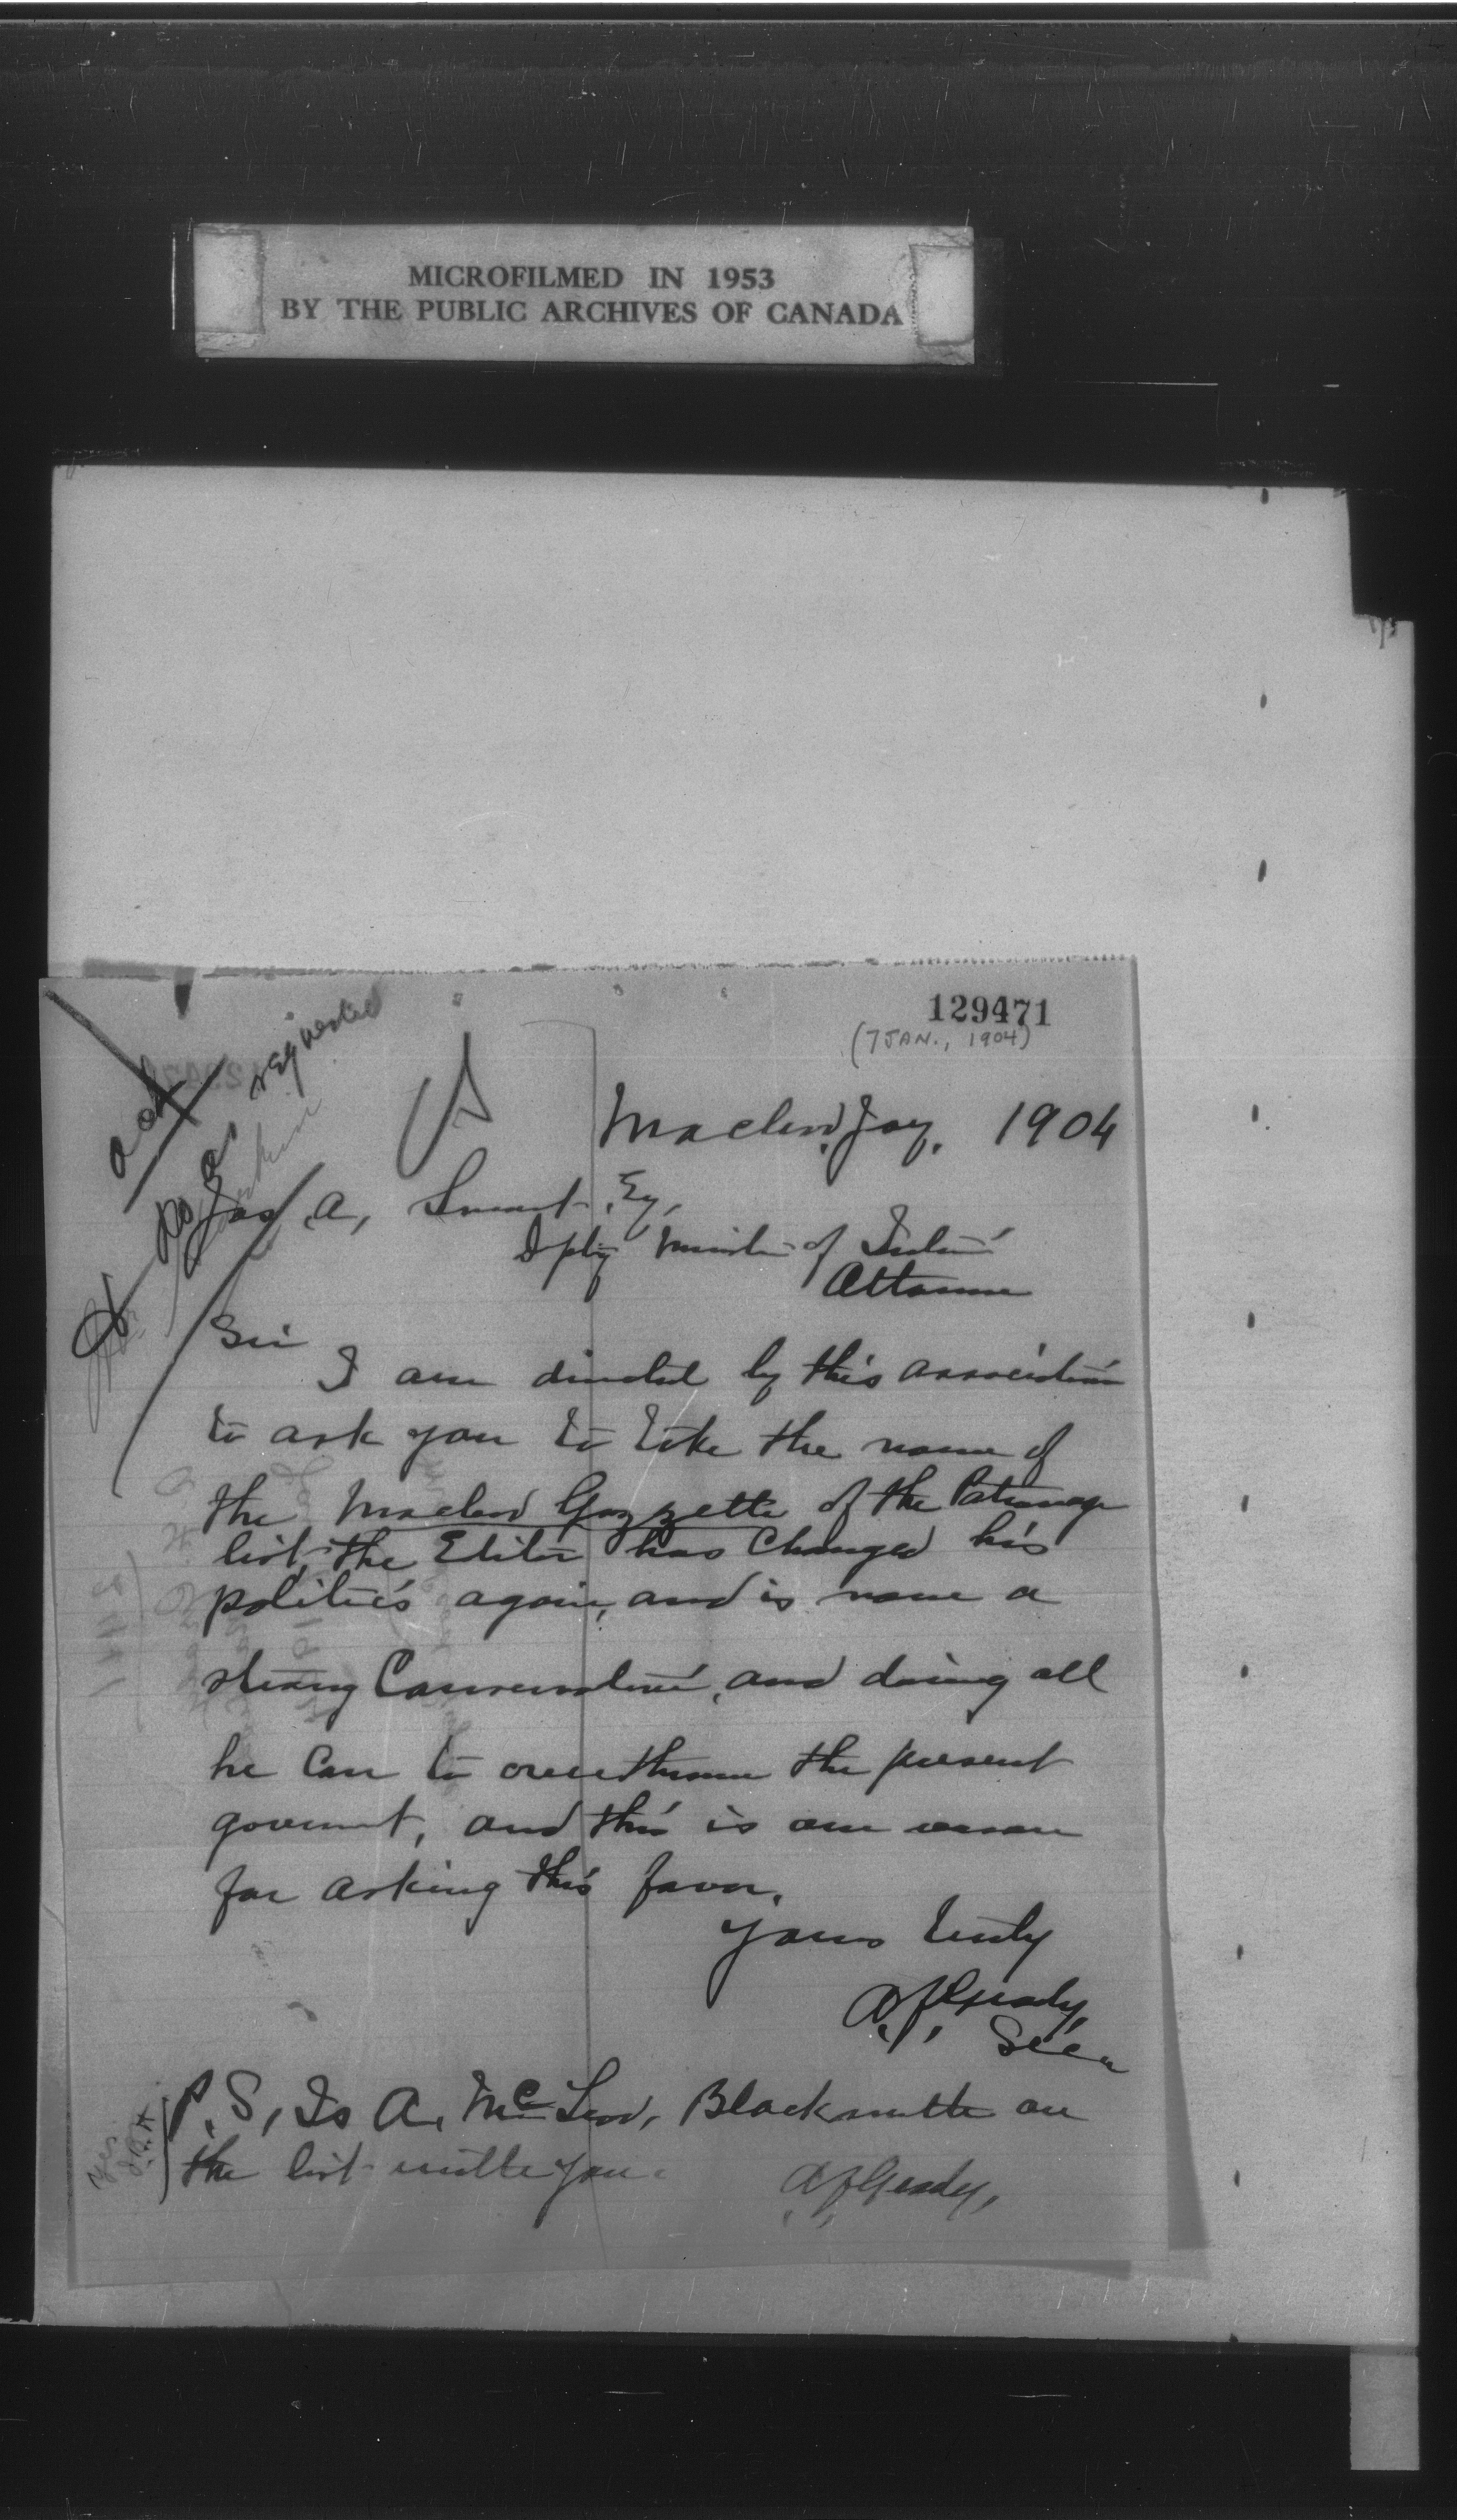 MICROFILMED IN 1953
BY THE PUBLIC ARCHIVES OF CANADA
129471
(7 JAN., 1904)
ack
Do as requested
Macleod, Jany. 1904
Jas, A, Smart, Esq,
Dpty Minister of Interior
Ottawa
Sir
I am directed by this association
to ask you to take the name of
the Macleod Gazzette of the Patronage
list, the Editor has Changed his
politics again, and is now a
strong Conservative, and doing all
he Can to overthrow the present
goverment, and this is our reason
for asking this favor.
Yours truly
A. J. Grady,
Secy
P.S, Is A. McLeod, Blacksmith on
the list with you.
A. J. Grady,
Yes